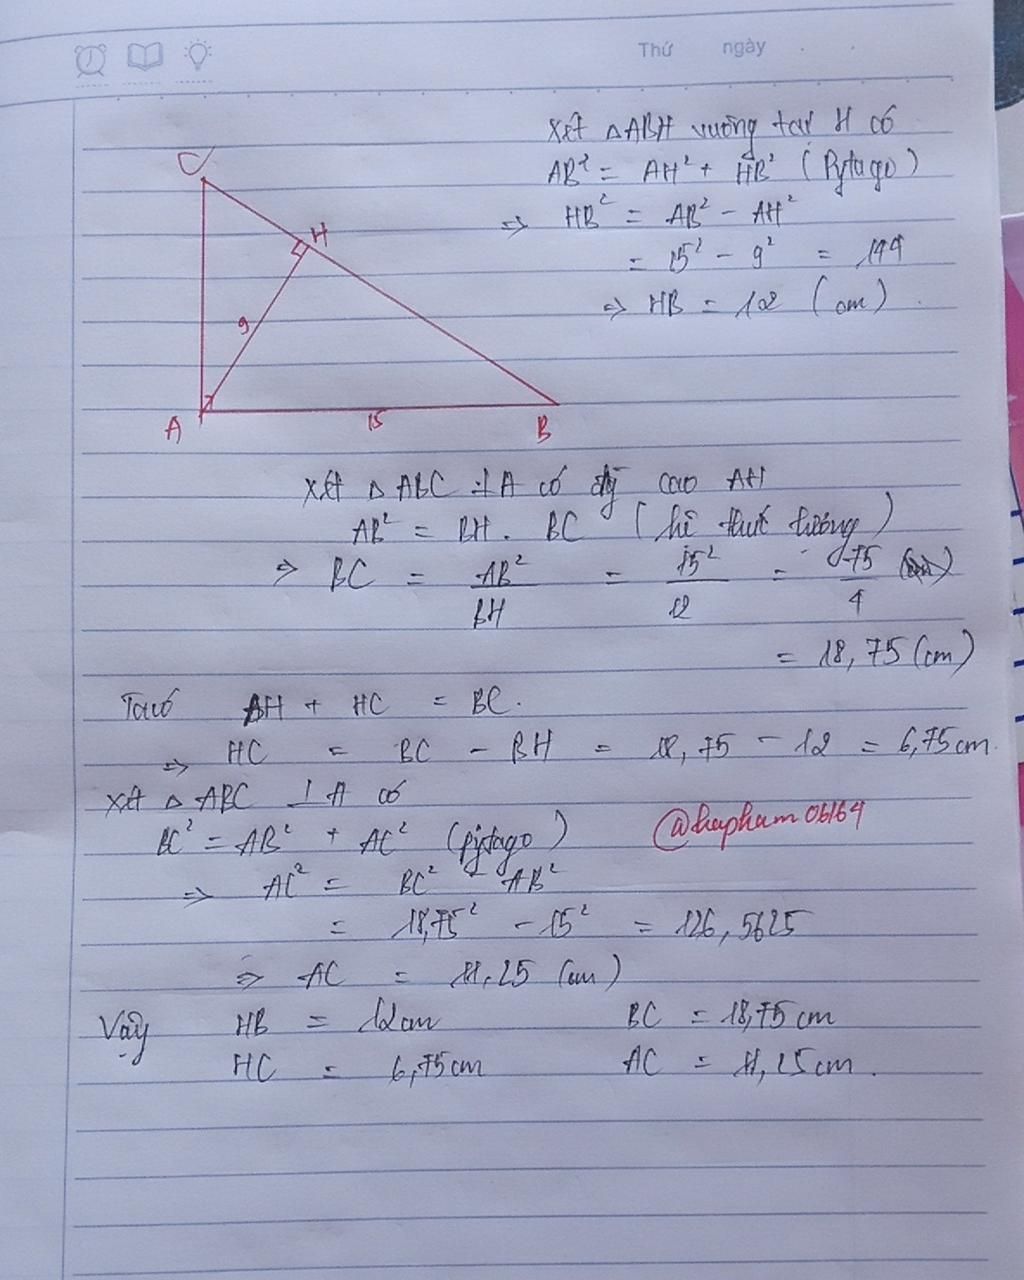 Thứ ngày
Xét △ABH vuông tại H có
AB² = AH² + HB² (Pytago)
⇒ HB² = AB² - AH²
= 15² - 9² = 144
⇒ HB = 12 (cm)
C
H
9
A
15
B
Xét △ABC ⊥A có đg cao AH
AB² = BH. BC (hệ thức lượng)
⇒ BC = AB²/BH = 15²/12 = 75/4
= 18,75 (cm)
Ta có BH + HC = BC.
⇒ HC = BC - BH = 18,75 - 12 = 6,75cm.
Xét △ABC ⊥A có
BC² = AB² + AC² (pytago)
@hapham06164
⇒ AC² = BC² - AB²
= 18,75² - 15² = 126,5625
⇒ AC = 11,25 (cm)
Vậy HB = 12cm BC = 18,75cm
HC = 6,75cm AC = 11,25cm.